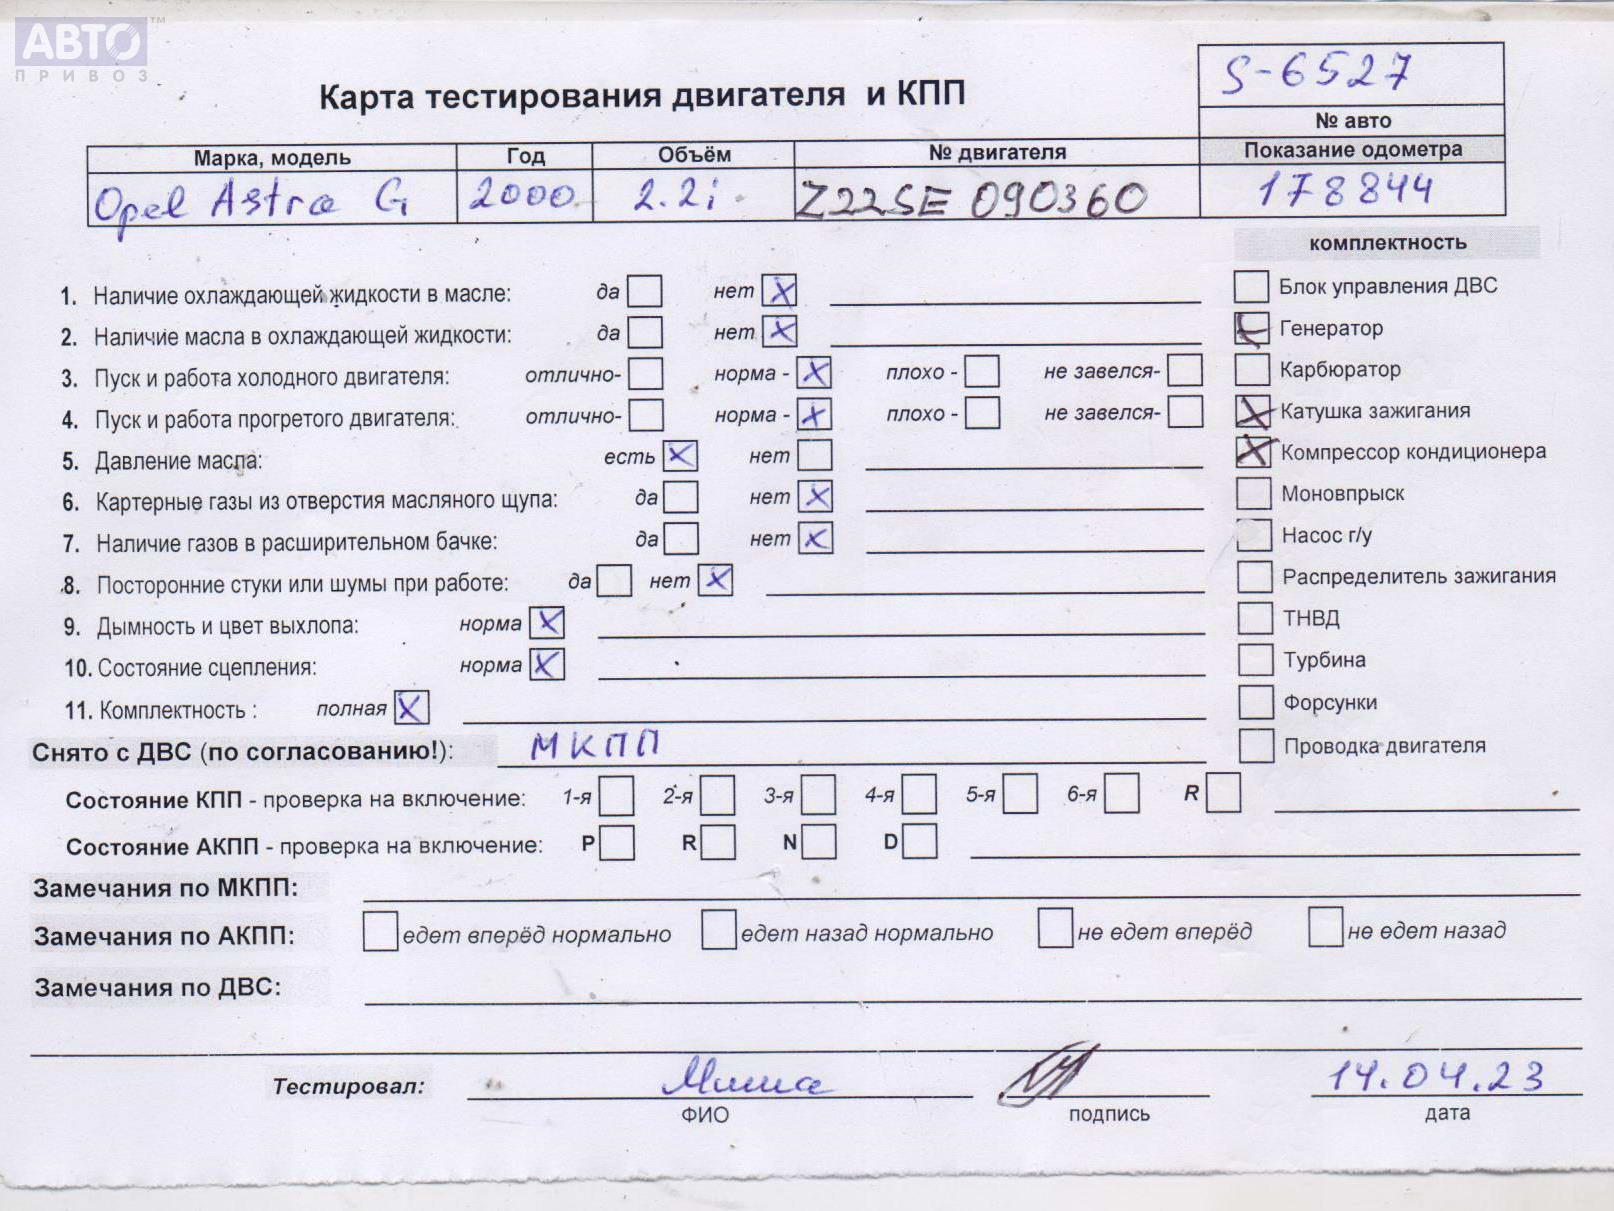 АВТО™
ПРИВОЗ
S-6527
Карта тестирования двигателя и КПП
№ авто
Марка, модель Год Объём № двигателя Показание одометра
Opel Astra G 2000 2.2i Z22SE 090360 178844
комплектность
1. Наличие охлаждающей жидкости в масле: да нет X
Блок управления ДВС
2. Наличие масла в охлаждающей жидкости: да нет X
Генератор
3. Пуск и работа холодного двигателя: отлично- норма - X плохо - не завелся-
Карбюратор
4. Пуск и работа прогретого двигателя: отлично- норма - X плохо - не завелся-
X Катушка зажигания
5. Давление масла: есть X нет
X Компрессор кондиционера
6. Картерные газы из отверстия масляного щупа: да нет X
Моновпрыск
7. Наличие газов в расширительном бачке: да нет X
Насос г/у
8. Посторонние стуки или шумы при работе: да нет X
Распределитель зажигания
9. Дымность и цвет выхлопа: норма X
ТНВД
10. Состояние сцепления: норма X
Турбина
11. Комплектность : полная X
Форсунки
Снято с ДВС (по согласованию!): МКПП
Проводка двигателя
Состояние КПП - проверка на включение: 1-я 2-я 3-я 4-я 5-я 6-я R
Состояние АКПП - проверка на включение: P R N D
Замечания по МКПП:
Замечания по АКПП: едет вперёд нормально едет назад нормально не едет вперёд не едет назад
Замечания по ДВС:
Тестировал: Миша 14.04.23
ФИО подпись дата